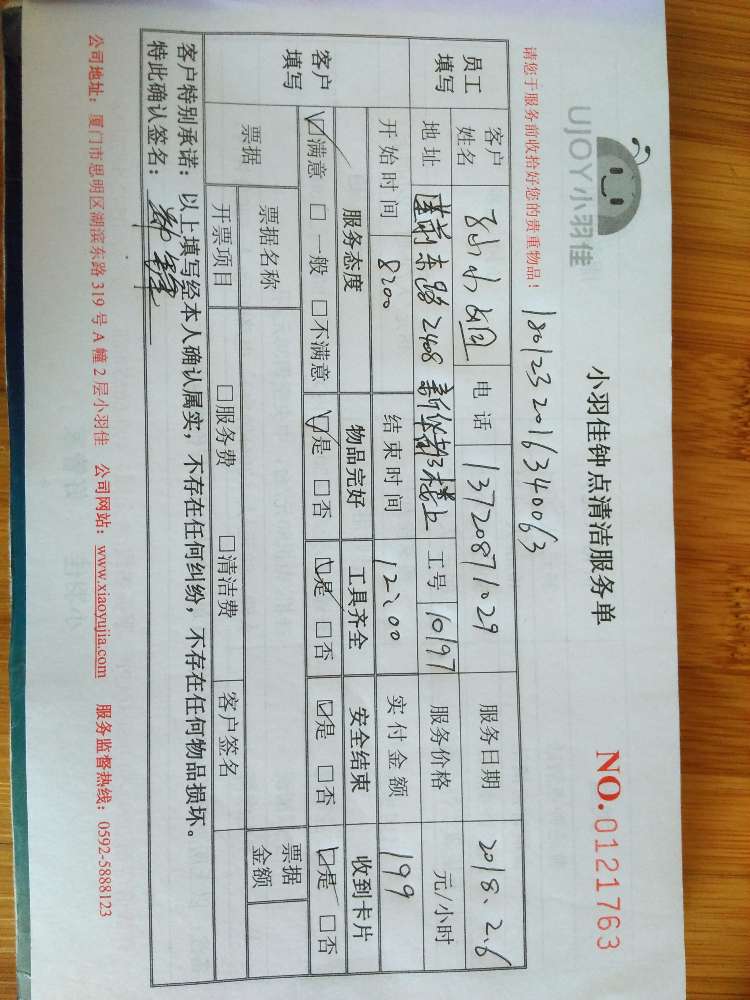 UJOY小羽佳
小羽佳钟点清洁服务单
NO.0121763
请您于服务前收拾好您的贵重物品！
1801232016340063
员工填写 客户姓名 电话 13720871029 服务日期 2018.2.6
地址 莲前东路2408 楼上 工号 10197 服务价格 元/小时
开始时间 8:00 结束时间 12:00 实付金额 199
客户填写 服务态度 物品完好 工具齐全 安全结束 收到卡片
☑满意 □一般 □不满意 ☑是 □否 ☑是 □否 ☑是 □否 ☑是 □否
票据 票据名称 票据金额
开票项目 □服务费 □清洁费 客户签名
客户特别承诺：以上填写经本人确认属实，不存在任何纠纷，不存在任何物品损坏。
特此确认签名：
公司地址：厦门市思明区湖滨东路319号A幢2层小羽佳 公司网站：www.xiaoyujia.com 服务监督热线：0592-5888123